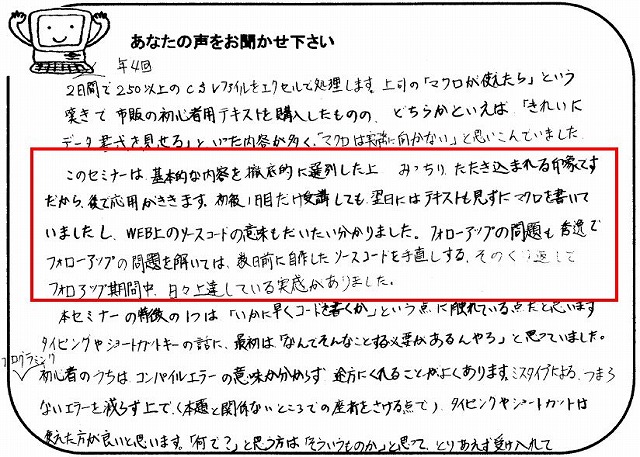 あなたの声をお聞かせ下さい
年4回
2日間で250以上のCSVファイルをエクセルで処理します。上司の「マクロが使えたら」という
突きで市販の初心者用テキストを購入したものの、どちらかといえば、「きれいに
データ書式を見せる」といった内容が多く、「マクロは実務に向かない」と思いこんでいました
このセミナーは、基本的な内容を徹底的に選別した上 みっちり、たたき込まれる印象です
だから、後で応用がききます。初級1日目だけ受講しても、翌日にはテキストも見ずにマクロを書いて
いましたし、WEB上のソースコードの意味もだいたい分かりました。フォローアップの問題も秀逸で
フォローアップの問題を解いては、数日前に自作したソースコードを手直しする、そのくり返しで
フォロアップ期間中、日々上達している実感がありました。
本セミナーの特徴の1つは「いかに早くコードを書くか」という点に触れている点だと思います
タイピングやショートカットキーの話に、最初は「なんでそんなことする必要があるんやろ」と思っていました。
プログラミング
初心者のうちは、コンパイルエラーの意味が分からず、途方にくれることがよくあります。ミスタイプによる、つまら
ないエラーを減らす上で、（本題と関係ないところでの挫折をさける点で）、タイピングやショートカットは
使えた方が良いと思います。「何で？」と思う方は「そういうものか」と思って、とりあえず受け入れて